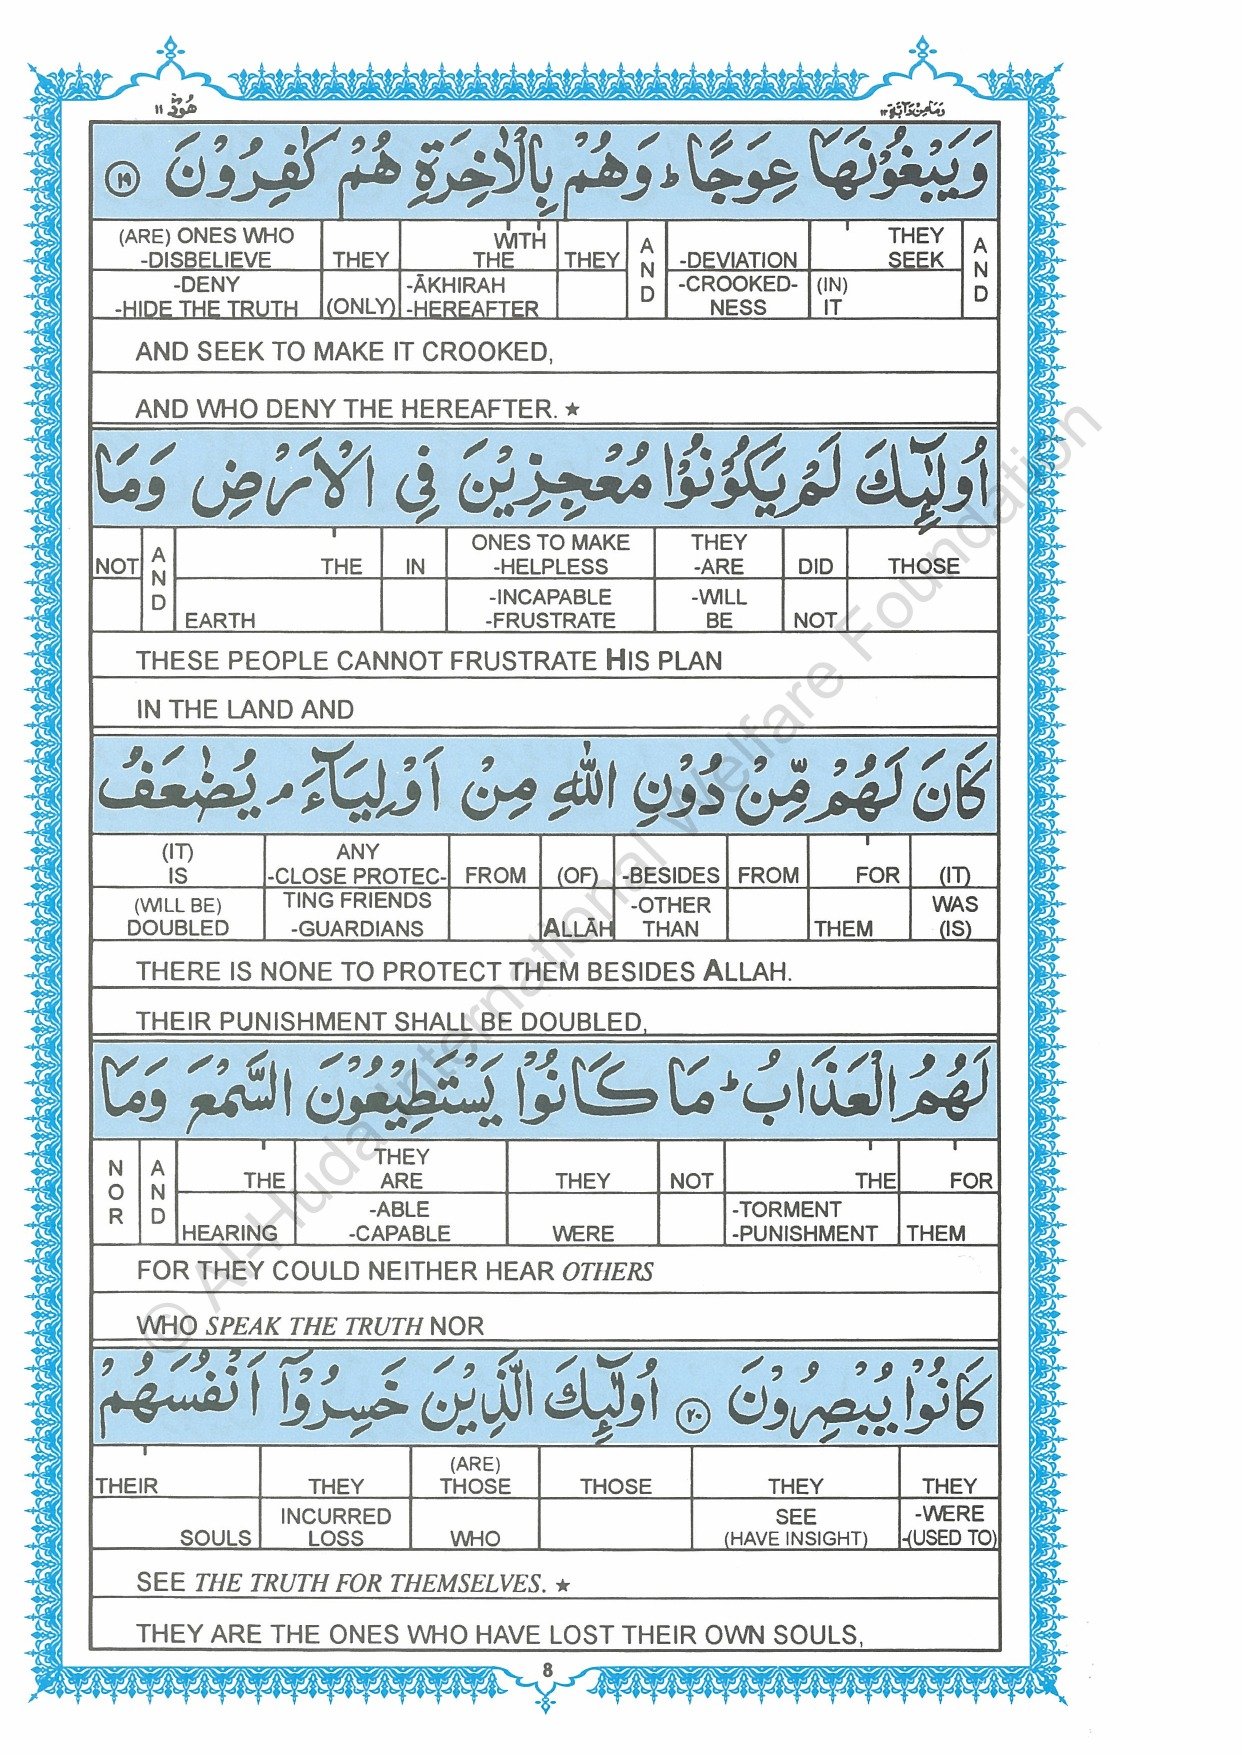 وَمَا مِنْ دَآبَّةٍ ۱۲ هُوْدٌ ۱۱
وَيَبْغُوْنَهَا عِوَجًا ؕ وَهُمْ بِالْاٰخِرَةِ هُمْ كٰفِرُوْنَ ۱۹
(ARE) ONES WHO WITH THEY
-DISBELIEVE THEY THE THEY AND -DEVIATION SEEK AND
-DENY -ĀKHIRAH -CROOKED- (IN)
-HIDE THE TRUTH (ONLY) -HEREAFTER NESS IT
AND SEEK TO MAKE IT CROOKED,
AND WHO DENY THE HEREAFTER. ★
اُولٰٓئِكَ لَمْ يَكُوْنُوْا مُعْجِزِيْنَ فِى الْاَرْضِ وَمَا
ONES TO MAKE THEY
NOT AND THE IN -HELPLESS -ARE DID THOSE
-INCAPABLE -WILL
EARTH -FRUSTRATE BE NOT
THESE PEOPLE CANNOT FRUSTRATE HIS PLAN
IN THE LAND AND
كَانَ لَهُمْ مِّنْ دُوْنِ اللّٰهِ مِنْ اَوْلِيَآءَ ۘ يُضٰعَفُ
(IT) ANY
IS -CLOSE PROTEC- FROM (OF) -BESIDES FROM FOR (IT)
(WILL BE) TING FRIENDS -OTHER WAS
DOUBLED -GUARDIANS ALLĀH THAN THEM (IS)
THERE IS NONE TO PROTECT THEM BESIDES ALLAH.
THEIR PUNISHMENT SHALL BE DOUBLED,
لَهُمُ الْعَذَابُ ؕ مَا كَانُوْا يَسْتَطِيْعُوْنَ السَّمْعَ وَمَا
THEY
NOR AND THE ARE THEY NOT THE FOR
-ABLE -TORMENT
HEARING -CAPABLE WERE -PUNISHMENT THEM
FOR THEY COULD NEITHER HEAR OTHERS
WHO SPEAK THE TRUTH NOR
كَانُوْا يُبْصِرُوْنَ ۲۰ اُولٰٓئِكَ الَّذِيْنَ خَسِرُوْٓا اَنْفُسَهُمْ
(ARE)
THEIR THEY THOSE THOSE THEY THEY
INCURRED SEE -WERE
SOULS LOSS WHO (HAVE INSIGHT) -(USED TO)
SEE THE TRUTH FOR THEMSELVES. ★
THEY ARE THE ONES WHO HAVE LOST THEIR OWN SOULS,
8
© Al-Huda International Welfare Foundation